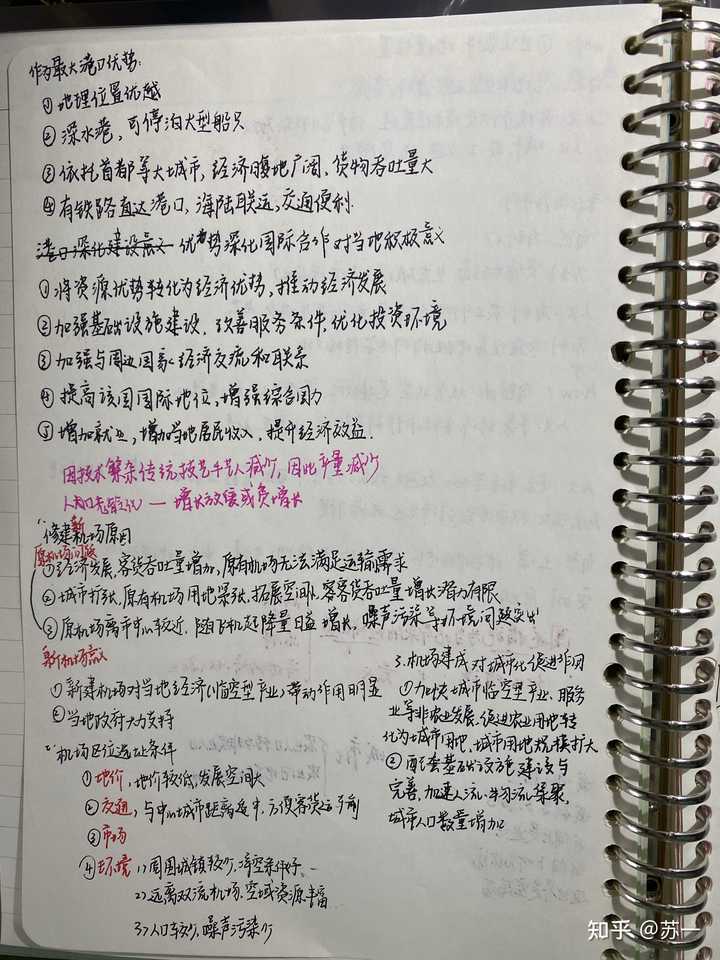 作为最大港口优势:
①地理位置优越
②深水港,可停泊大型船只
③依托首都等大城市,经济腹地广阔,货物吞吐量大
④有铁路直达港口,海陆联运,交通便利.
港口深化建设意义 优势深化国际合作对当地积极意义
①将资源优势转化为经济优势,推动经济发展
②加强基础设施建设.改善服务条件,优化投资环境
③加强与周边国家经济交流和联系
④提高该国国际地位,增强综合国力
⑤增加就业,增加当地居民收入,提升经济效益.
因技术繁杂传统技艺手艺人减少,因此产量减少
人口老龄化—增长放缓或负增长
1、修建新机场原因
原机场问题
①经济发展,客货吞吐量增加,原有机场无法满足运输需求
②城市扩张,原有机场用地紧张,拓展空间小,客货吞吐量增长潜力有限
③原机场离市中心较近,随飞机起降量日益增长,噪声污染等环境问题突出
新机场意义
①新建机场对当地经济(临空型产业)带动作用明显
②当地政府大力支持
2、机场区位选址条件
①地价,地价较低,发展空间大
②交通,与中心城市距离适中,方便客货运
③市场
④环境 1)周围城镇较少,净空条件好
2)远离双流机场,空域资源丰富
3)人口较少,噪声污染少
3.机场建成对城市化促进作用
①加快城市临空型产业、服务
业等非农业发展,促进农业用地转
化为城市用地,城市用地规模扩大
②配套基础设施建设与
完善,加速人流、物流集聚,
城市人口数量增加
知乎 @苏一